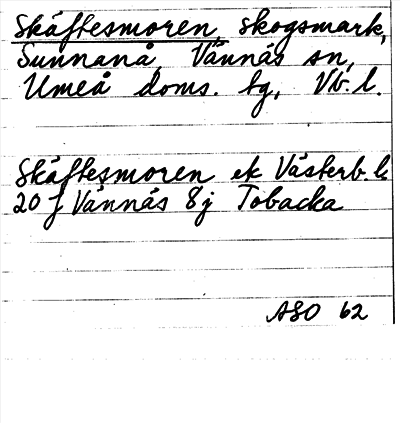 Skäftesmoren, skogsmark,
Sunnanå, Vännäs sn,
Umeå doms. tg, Vb. l.
Skäftesmoren ek Västerb. l.
20 f Vännäs 8 j Tobacka
ASO 62